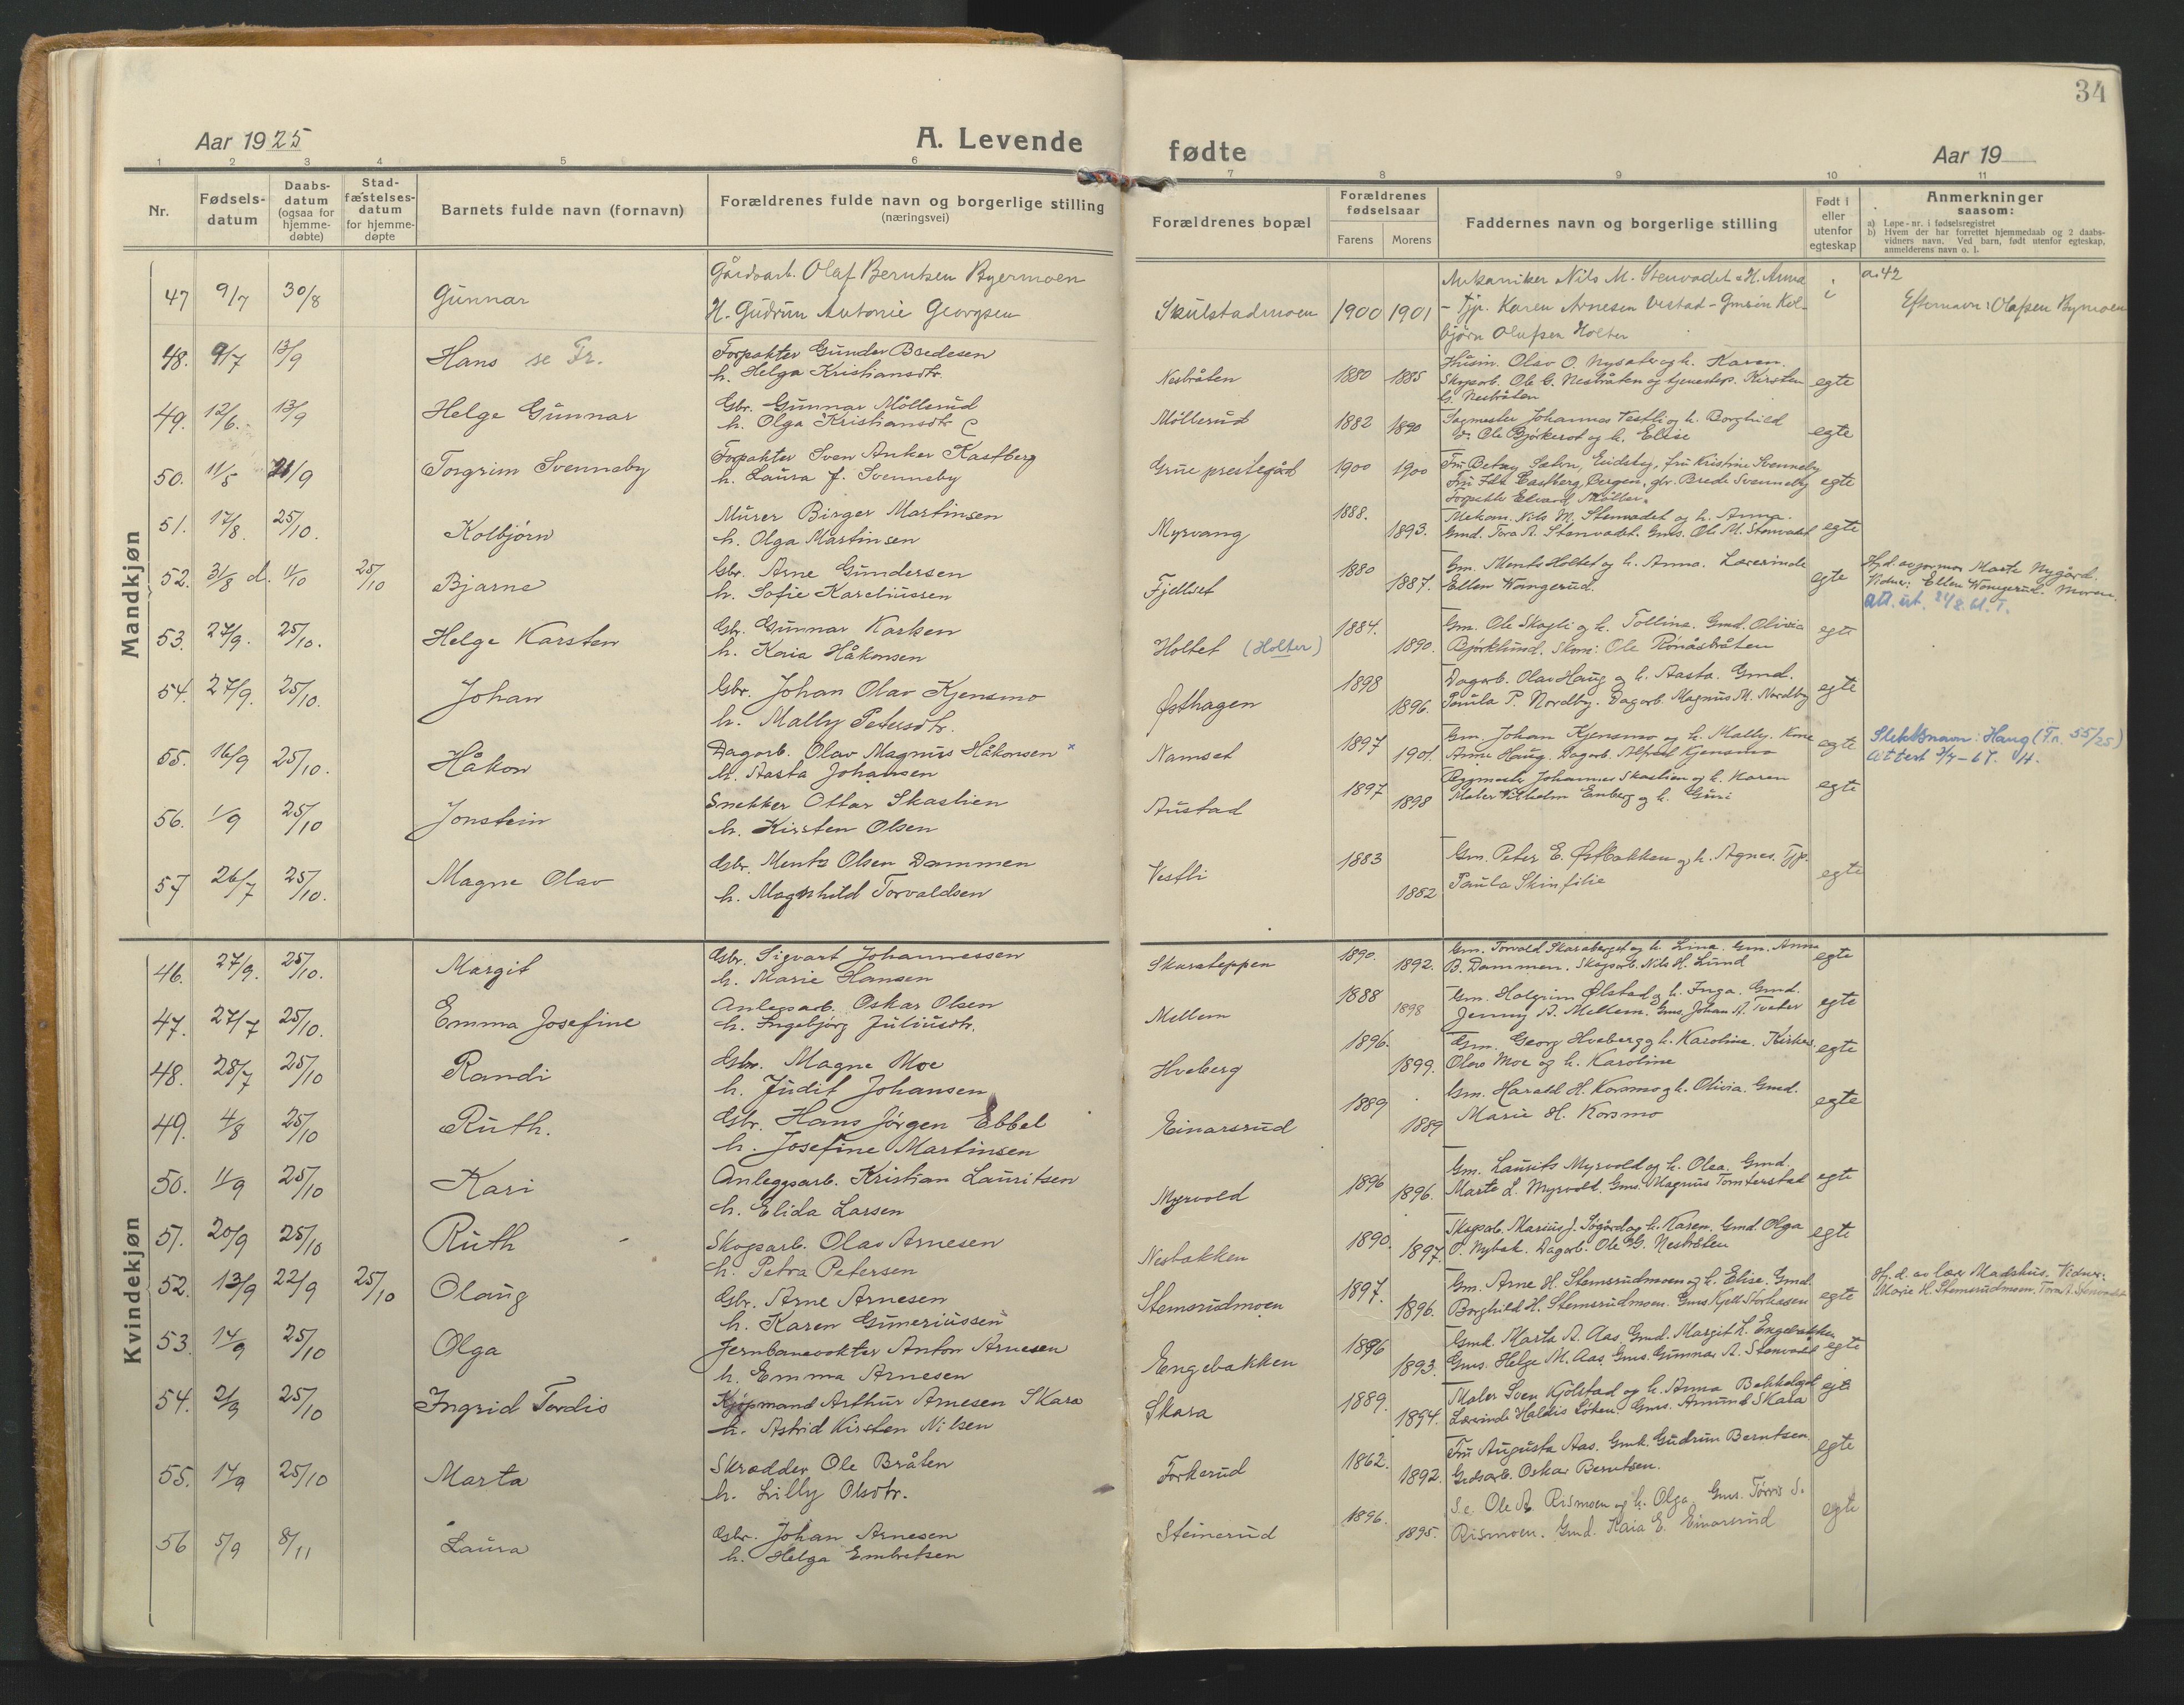 34
Aar 1925 A. Levende fødte Aar 19
1 2 3 4 5 6 7 8 9 10 11
Nr. Fødsels-datum Daabs-datum (ogsaa for hjemme-døbte) Stad-fæstelses-datum for hjemme-døpte Barnets fulde navn (fornavn) Forældrenes fulde navn og borgerlige stilling (næringsvei) Forældrenes bopæl Forældrenes fødselsaar Farens Morens Faddernes navn og borgerlige stilling Født i eller utenfor egteskap Anmerkninger saasom:
a) Løpe-nr. i fødselsregistret
b) Hvem der har forrettet hjemmedaab og 2 daabs-vidners navn. Ved barn, født utenfor egteskap, anmelderens navn o. l.
Mandkjøn
47 9/7 30/8 Gunnar Gårdsarb. Olaf Berntsen Byermoen
H. Gudrun Antonie Georgsen Skulstadmoen 1900 1901 Mekaniker Nils M. Stenvadet o H. Anna
- Tjp. Karen Arnesen Vestad - Gmsøn Kol-
bjørn Olufsen Holter i a. 42
Efternavn: Olafsen Bymoen
48. 9/7 13/9 Hans se Fr. Forpakter Gunder Bredesen
h. Helga Kristiansdtr. Nesbråten 1880 1885 Husm. Olav O. Nysater og h. Karen.
Skogarb. Ole G. Nesbråten og tjenestep. Kirsten
G. Nesbråten egte
49. 12/6. 13/9 Helge Gunnar Gbr. Gunnar Möllerud
h. Olga Kristiansdtr Möllerud 1882 1890 Sagmester Johannes Vestli og h. Borghild
Ole Björkerot og h. Elise egte
50. 11/5 /9 Torgrim Svenneby Forpakter Sven Anker Kastberg
h. Laura J. Svenneby Grue prestegård 1900 1900 Fru Betzy Sæter, Eidsteg, fru Kristine Svenneby
Fru Ida Castberg, Bergen, gbr. Brede Svenneby
Forpakter Edvard Møller. egte
51. 17/8. 25/10. Kolbjörn Murer Birger Martinsen
h. Olga Martinsen Myrvang 1888. 1893. Mekan. Nils M. Stenvadet og h. Anna.
Gmd. Tora A. Stenvadet. Gms. Ole M. Stenvadet egte
52. 31/8 d. 11/10 25/10 Bjarne Gbr. Arne Gundersen
h. Sofie Kareliussen Fjellset 1880 1887. Gm. Ments Holtet og h. Anna. Lærerinde
Ellen Wangerud. egte Hj.d. av jormor Marte Nygård.
Vidner: Ellen Wangerud. Moren.
att. ut. 24/8. 61. T.
53. 27/9. 25/10. Helge Karsten Gbr. Gunnar Karlsen
h. Karia Håkonsen Holtet (Holter) 1884. 1890. Gm. Ole Skogli og h. Tolline. Gmd. Olivia
Björklund. Skom: Ole Rönåsbråten egte
54. 27/9. 25/10. Johan Gbr. Johan Olav Kjensmo
h. Mally Petersdtr. Østhagen 1898 1896. Dagarb. Olav Haug og h. Aasta. Gmd.
Paula P. Nordby. Dagarb. Magnus M. Nordby egte
55. 16/9 25/10. Håkon Dagarb. Olav Magnus Håkonsen x
h. Aasta Johansen Namset 1897 1901. Gm. Johan Kjensmo og h. Mally. Kone
Anne Haug. Dagarb. Alfred Kjensmo egte Slektsnavn: Haug (Fn. 55/25)
Attest 3/7-67.
56. 1/9 25/10 Jonstein Snekker Ottar Skaslien
h. Kirsten Olsen Austad 1897 1898 Bygmester Johannes Skaslien og h. Karen
Maler Vilhelm Enberg og h. Guri egte
57 26/7 25/10. Magne Olav Gbr. Ments Olsen Dammen
h. Magnhild Torvaldsen Vestli 1883 1882 Gm. Peter E. Østbakken og h. Agnes. Tjp.
Paula Skinfilie egte
Kvindekjøn
46. 27/9. 25/10. Margit Gbr. Sigvart Johannessen
h. Marie Hansen Skarateppen 1890. 1892. Gm. Torvald Skaraberget og h. Lina. Gm. Anna
B. Dammen. Skogsarb. Nils H. Lund egte
47. 27/7 25/10. Emma Josefine Anlegsarb. Oskar Olsen
h. Ingebjörg Juliusdtr. Mellem 1888 1898 Gm. Halgrim Ølstad og h. Inga. Gmd.
Jenny A. Mellem. Gms. Johan A. Tveter egte
48. 28/7 25/10 Randi Gbr. Magne Moe
h. Judit Johansen Hveberg 1896. 1899. Gm. Georg Hveberg og h. Karoline. Kirkes.
Olav Moe og h. Karoline egte
49. 4/8 25/10 Ruth. Gbr. Hans Jörgen Ebbel
h. Josefine Martinsen Einarsrud 1889 1889 Gm. Harald H. Korsmo og h. Olivia. Gmd.
Marie H. Korsmo egte
50. 11/9 25/10 Kari Anleggsarb. Kristian Lauritsen
h. Elida Larsen Myrvold 1896 1896. Gm. Laurits Myrvold og h. Olea. Gmd.
Marte L. Myrvold. Gms. Magnus Tomterstad egte
51. 20/9 25/10 Ruth Skogsarb. Olav Arnesen
h. Petra Petersen Nesbakken 1890. 1897. Skogsarb. Marius J. Sogård og h. Karen. Gmd. Olga
O. Nybak. Dagarb. Ole G. Nesbråten egte
52. 13/9 22/9 25/10 Olaug Gbr. Arne Arnesen
h. Karen Guneriussen Stemsrudmoen 1897. 1896. Gm. Arne H. Stemsrudmoen og h. Elise. Gmd.
Borghild H. Stemsrudmoen. Gms Kjell Storhasen egte Hj.d. av lær Madshus. Vidner:
Marie H. Stemsrudmoen. Tora A. Stenvadet
53. 14/9 25/10 Olga Jernbanevokter Anton Arnesen
h. Emma Arnesen Engebakken 1896 1893. Gmk. Marta A. Aas. Gmd. Margit L. Engebakken
Gms. Helge M. Aas. Gms. Gunnar A. Stenvadet egte
54. 2/9 25/10 Ingrid Tordis Kjöpmand Arthur Arnesen Skara
h. Astrid Kirsten Nilsen Skara 1889. 1894. Maler Sven Kjölstad og h. Anna Bekkelaget
Lærerinde Haldis Löken. Gms. Amund Skara egte
55. 17/9 25/10 Marta Skrædder Ole Bråten
h. Lilly Olsdtr. Forkerud 1862. 1892. Fru Augusta Aas. Gmk. Gudrun Berntsen.
Gårdsarb. Oskar Berntsen. egte
56 5/9 8/11 Laura Gbr. Johan Arnesen
h. Helga Embretsen Steinerud 1896. 1895. S.e. Ole A. Rismoen og h. Olga. Gms. S.
Rismoen. Gmd. Kaia E. Einarsrud egte